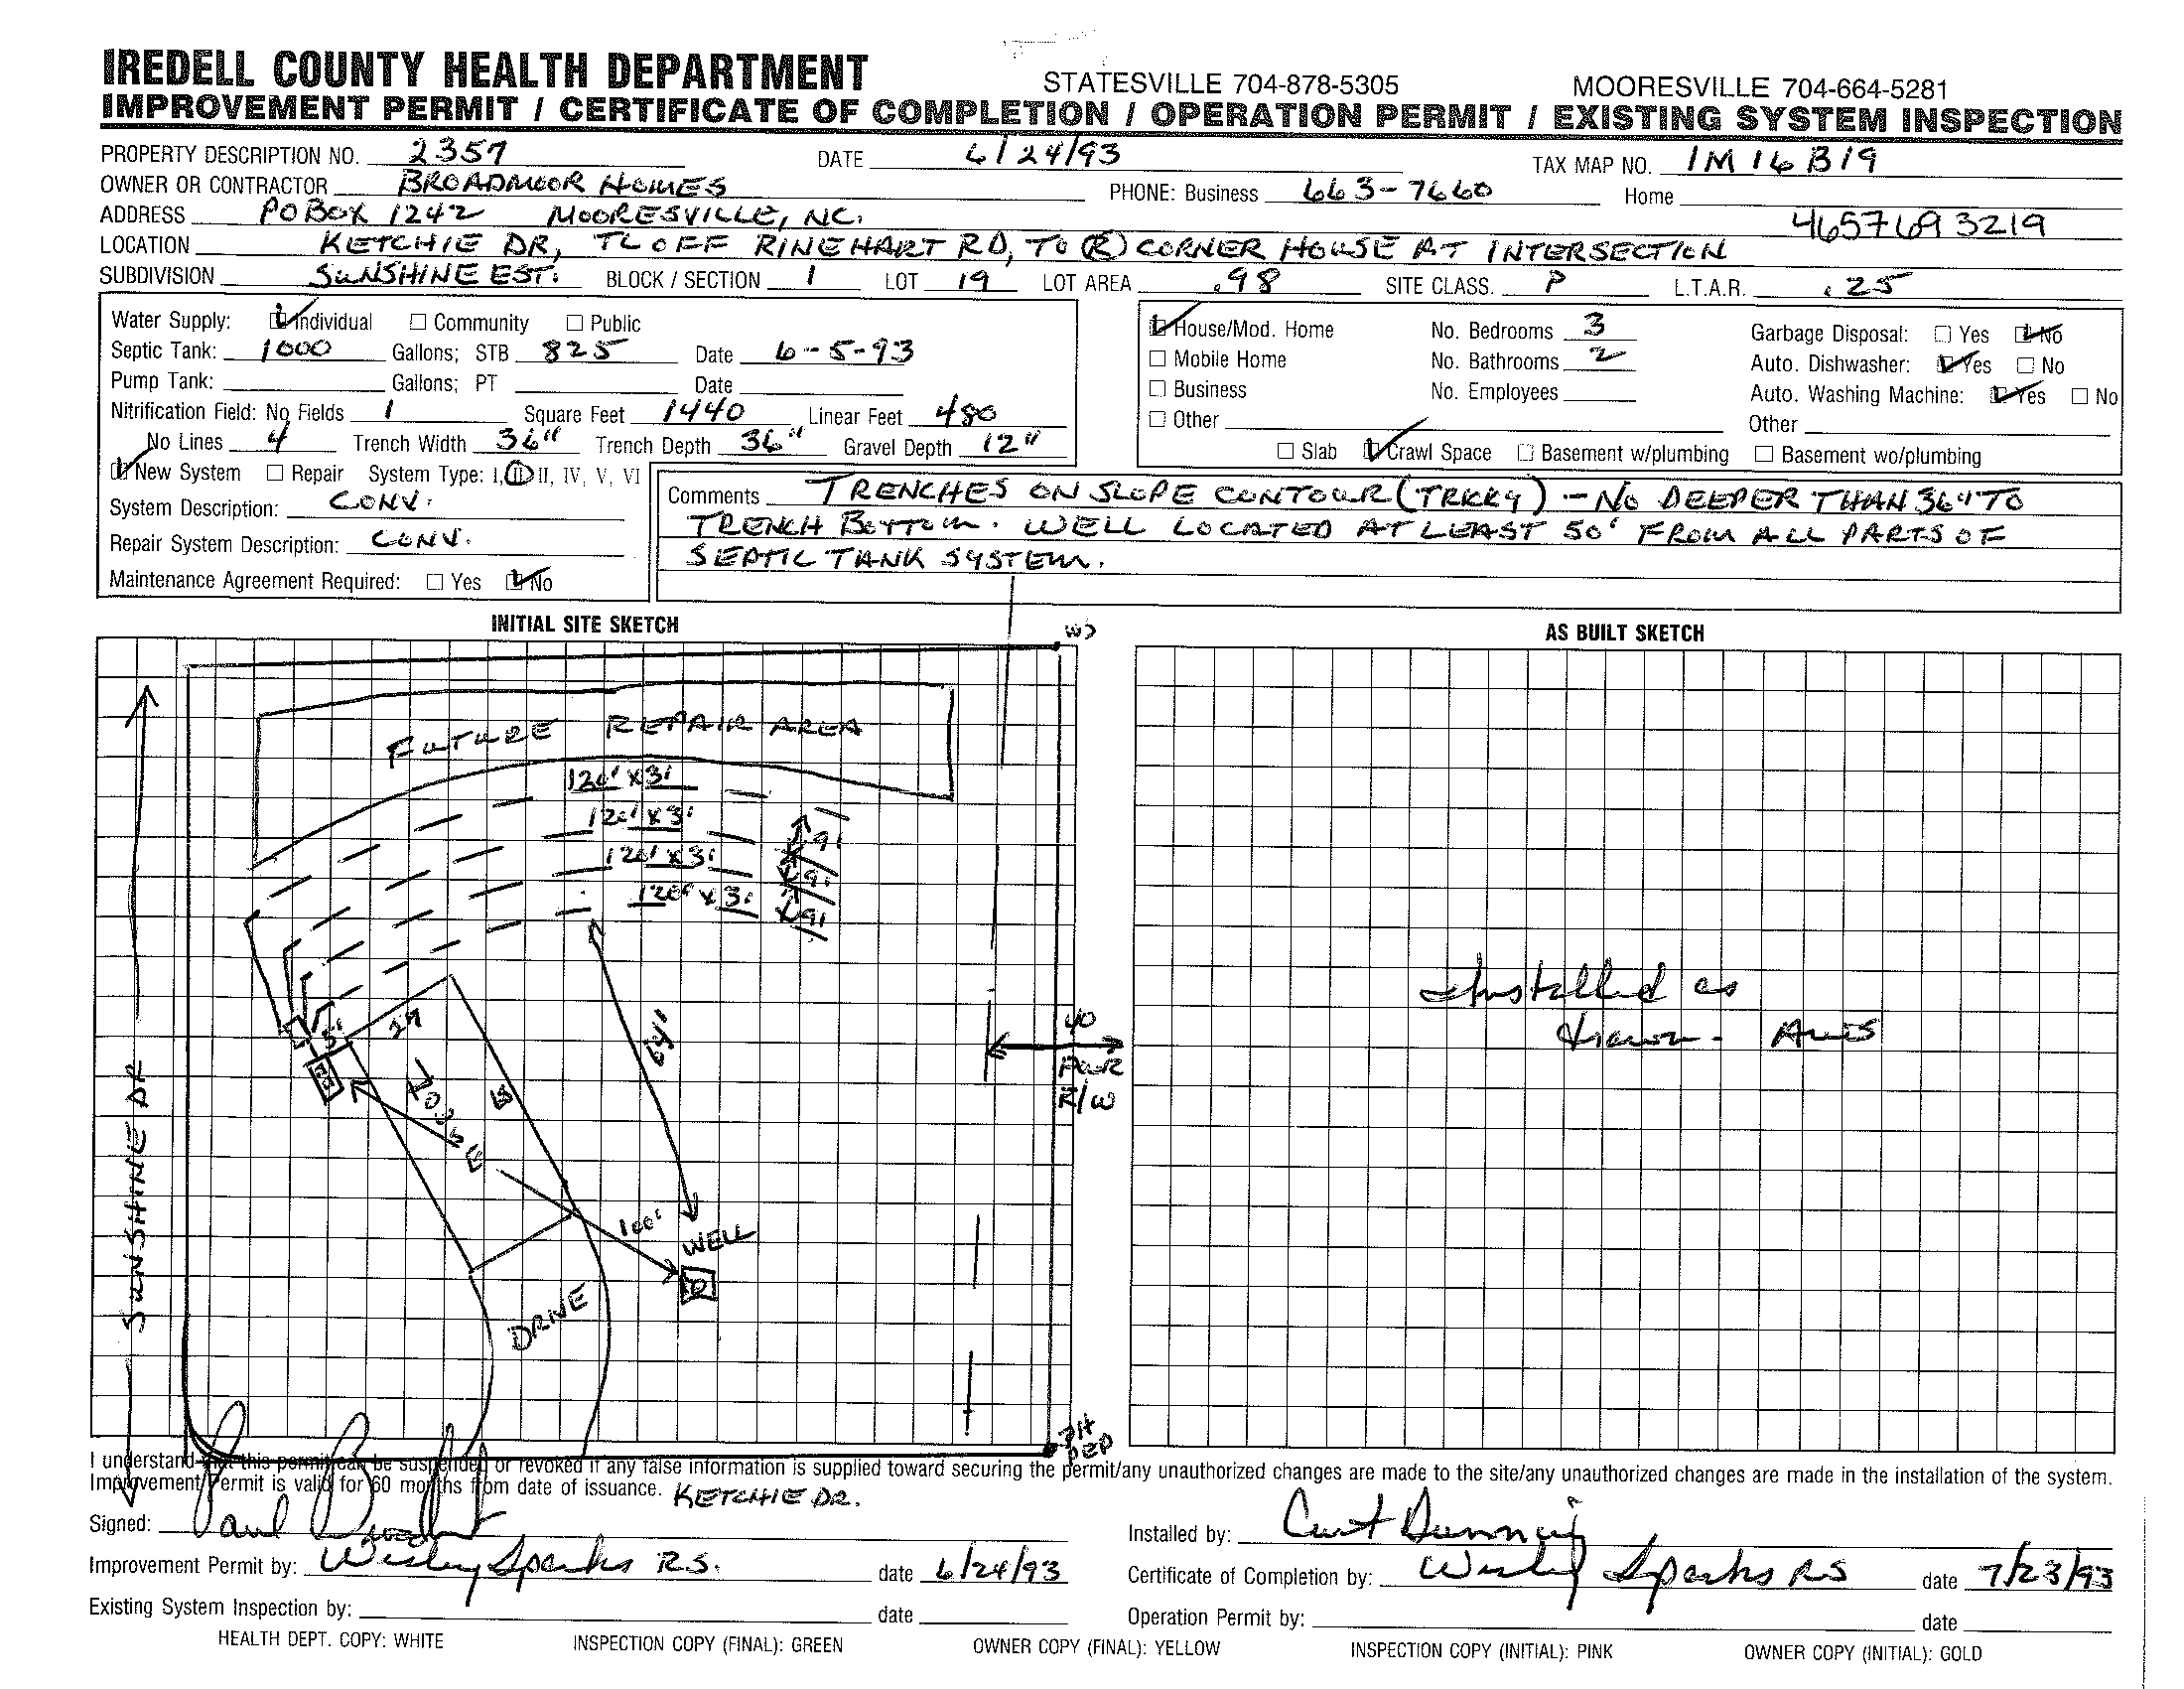 IREDELL COUNTY HEALTH DEPARTMENT STATESVILLE 704-878-5305 MOORESVILLE 704-664-5281
IMPROVEMENT PERMIT / CERTIFICATE OF COMPLETION / OPERATION PERMIT / EXISTING SYSTEM INSPECTION
PROPERTY DESCRIPTION NO. 2357 DATE 6/24/93 TAX MAP NO. 1M16B19
OWNER OR CONTRACTOR BROADMOOR HOMES PHONE: Business 663-7660 Home
ADDRESS PO BOX 1242 MOORESVILLE, NC. 4657693219
LOCATION KETCHIE DR, TL OFF RINEHART RD, TO (R) CORNER HOUSE AT INTERSECTION
SUBDIVISION SUNSHINE EST. BLOCK / SECTION 1 LOT 19 LOT AREA .98 SITE CLASS. P L.T.A.R. .25
Water Supply: ☑ Individual ☐ Community ☐ Public
Septic Tank: 1000 Gallons; STB 825 Date 6-5-93
Pump Tank: Gallons; PT Date
Nitrification Field: No Fields 1 Square Feet 1440 Linear Feet 480
No Lines 4 Trench Width 36" Trench Depth 36" Gravel Depth 12"
☑ New System ☐ Repair System Type: I, II, II, IV, V, VI
System Description: CONV.
Repair System Description: CONV.
Maintenance Agreement Required: ☐ Yes ☑ No
☑ House/Mod. Home No. Bedrooms 3 Garbage Disposal: ☐ Yes ☑ No
☐ Mobile Home No. Bathrooms 2 Auto. Dishwasher: ☑ Yes ☐ No
☐ Business No. Employees Auto. Washing Machine: ☑ Yes ☐ No
☐ Other Other
☐ Slab ☑ Crawl Space ☐ Basement w/plumbing ☐ Basement wo/plumbing
Comments TRENCHES ON SLOPE CONTOUR (TRICKY) - NO DEEPER THAN 36" TO
TRENCH BOTTOM. WELL LOCATED AT LEAST 50' FROM ALL PARTS OF
SEPTIC TANK SYSTEM.
INITIAL SITE SKETCH
FUTURE REPAIR AREA
120' X 3'
120' X 3'
120' X 3'
120' X 3'
9'
9'
9'
5'
HOUSE
64'
100'
WELL
DRIVE
SUNSHINE DR
40
PWR
R/W
KETCHIE DR.
AS BUILT SKETCH
Installed as
drawn.
I understand that this permit can be suspended or revoked if any false information is supplied toward securing the permit/any unauthorized changes are made to the site/any unauthorized changes are made in the installation of the system.
Improvement Permit is valid for 60 months from date of issuance.
Signed: Paul
Installed by: Curt
Improvement Permit by: Wesley Sparks R.S. date 6/24/93
Certificate of Completion by: Wesley Sparks RS date 7/23/93
Existing System Inspection by: date
Operation Permit by: date
HEALTH DEPT. COPY: WHITE INSPECTION COPY (FINAL): GREEN OWNER COPY (FINAL): YELLOW INSPECTION COPY (INITIAL): PINK OWNER COPY (INITIAL): GOLD